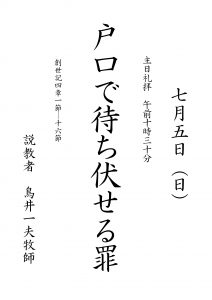 七月五日（日）
主日礼拝　午前十時三十分
戸口で待ち伏せる罪
創世記四章一節―十六節
説教者　鳥井一夫牧師